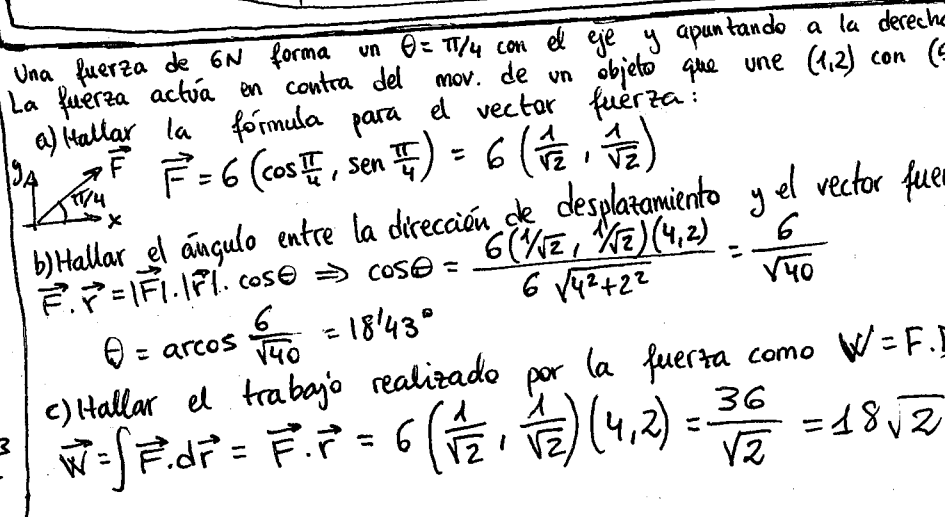 Una fuerza de 6N forma un θ = π/4 con el eje y apuntando a la derecha
La fuerza actúa en contra del mov. de un objeto que une (1,2) con (5
a) Hallar la fórmula para el vector fuerza:
y F⃗ π/4 x
F⃗ = 6 (cos π/4, sen π/4) = 6 (1/√2, 1/√2)
b) Hallar el ángulo entre la dirección de desplazamiento y el vector fuer
F⃗.r⃗ = |F⃗|.|r⃗|. cosθ ⇒ cosθ = 6(1/√2, 1/√2)(4,2) / 6 √4²+2² = 6/√40
θ = arcos 6/√40 = 18'43°
c) Hallar el trabajo realizado por la fuerza como W = F.
W⃗ = ∫F⃗.dr⃗ = F⃗.r⃗ = 6 (1/√2, 1/√2)(4,2) = 36/√2 = 18√2
3